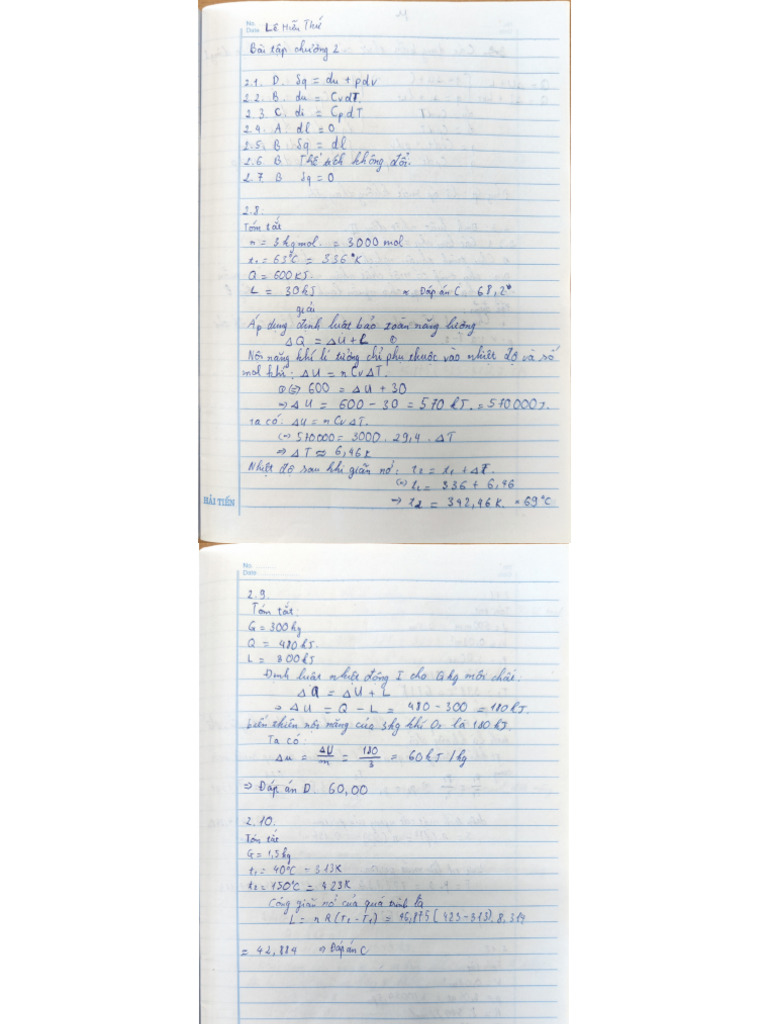 No.
Date. Lê Hữu Thế
Bài tập chương 2
2.1. D. δq = du + pdv
2.2. B. du = CvdT.
2.3. C. di = CpdT
2.4. A. dl = 0
2.5. B δq = dl
2.6 B. Thể tích không đổi.
2.7. B δq = 0
2.8:
Tóm tắt
n = 3 kgmol. = 3000 mol
t₁ = 63°C = 336°K
Q = 600 KJ.
L = 30 kJ Đáp án C 68,2°
giải
Áp dụng định luật bảo toàn năng lượng
ΔQ = ΔU + L
Nội năng khí lí tưởng chỉ phụ thuộc vào nhiệt độ và số
mol khí: ΔU = nCvΔT.
(=) 600 = ΔU + 30
=> ΔU = 600 - 30 = 570 kJ. = 570000 J.
Ta có: ΔU = nCvΔT.
(=) 570000 = 3000. 29,4. ΔT
=> ΔT ≈ 6,46K
Nhiệt độ sau khi giãn nở: t₂ = t₁ + ΔT.
(=) t₂ = 336 + 6,46
=> t₂ = 342,46 K. = 69°C
HẢI TIẾN
No.
Date
2.9.
Tóm tắt:
G = 300 kg
Q = 480 kJ.
L = 300 kJ
Định luật nhiệt động I cho G kg môi chất:
ΔQ = ΔU + L
=> ΔU = Q - L = 480 - 300 = 180 kJ.
biến thiên nội năng của 3kg khí O₂ là 180 kJ.
Ta có:
Δu = ΔU/m = 180/3 = 60 kJ/kg
=> Đáp án D 60,00
2.10.
Tóm tắt
G = 1,5 kg
t₁ = 40°C = 313K
t₂ = 150°C = 423K
Công giãn nở của quá trình là
L = nR(T₂ - T₁) = 46,875(423-313).8,314
= 42,884 => Đáp án C